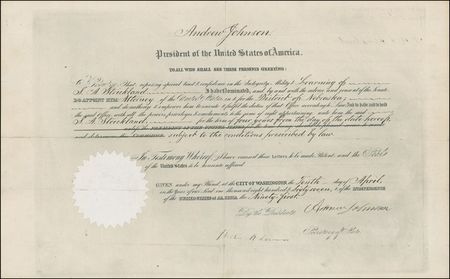 Andrew Johnson
President of the United States of America.
TO ALL WHO SHALL SEE THESE PRESENTS GREETING:
Know Ye That reposing special trust and confidence in the Integrity, Ability & Learning of
Strickland I have Nominated, and by and with the advice and consent of the Senate
DO APPOINT HIM Attorney of the United States in & for the District of Nebraska; and
do authorize and empower him to execute and fulfil the duties of that Office according to Law; And to have and to hold
the said Office, with all the powers, privileges & emoluments to the same of right appertaining unto him the said
Strickland for the term of four years from the day of the date hereof,
subject to the conditions prescribed by law.
In Testimony Whereof, I have caused these Letters to be made Patent, and the Seal
of the United States to be hereunto affixed.
GIVEN under my Hand, at the CITY OF WASHINGTON, the Tenth day of April,
in the Year of our Lord one thousand eight hundred & Sixty seven, & of the INDEPENDENCE
OF THE UNITED STATES OF AMERICA, the Ninety first.
By the President
Andrew Johnson
Secretary of State